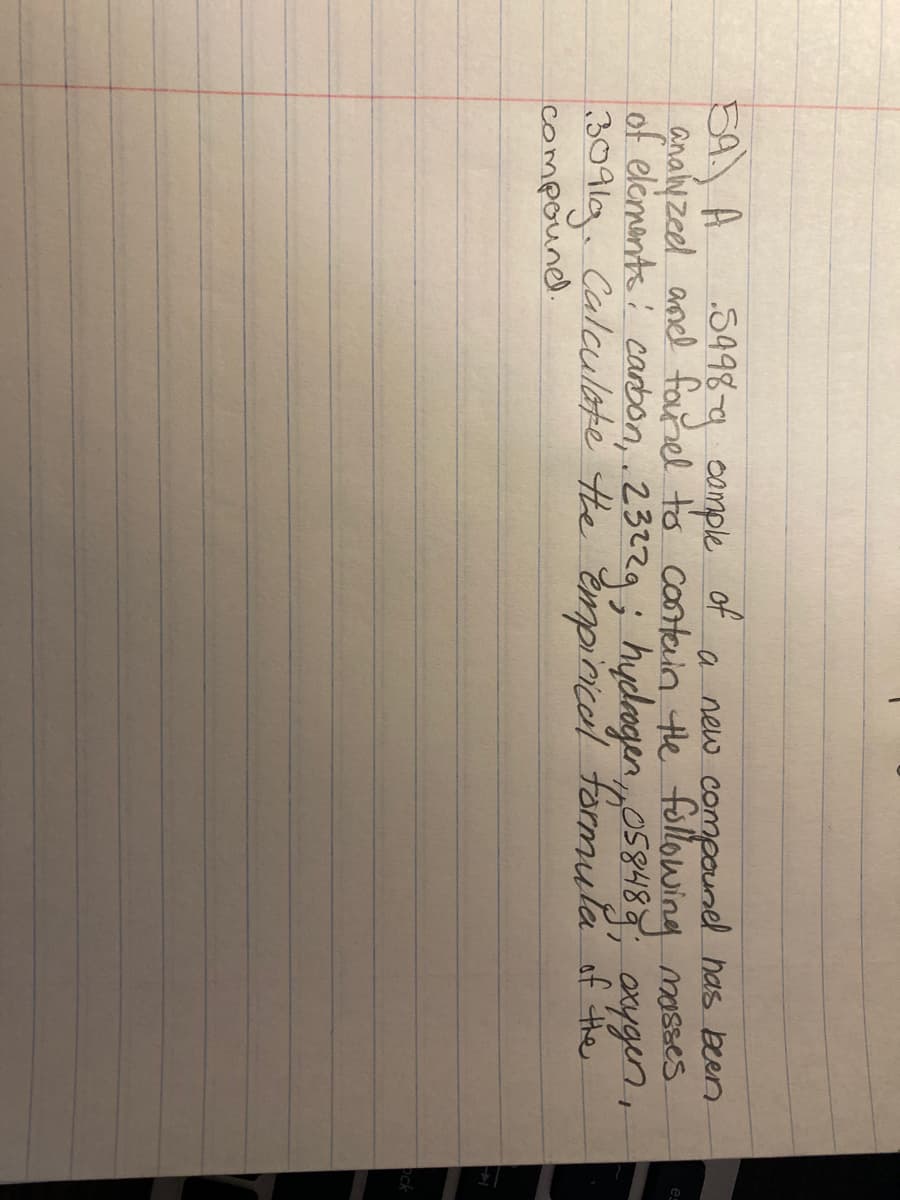 59.) A .5998-g sample of a new compound has been
analyzed and found to contain the following masses
of elements: carbon, .2322g; hydrogen, .05848g; oxygen,
.3091g. Calculate the empirical formula of the
compound.